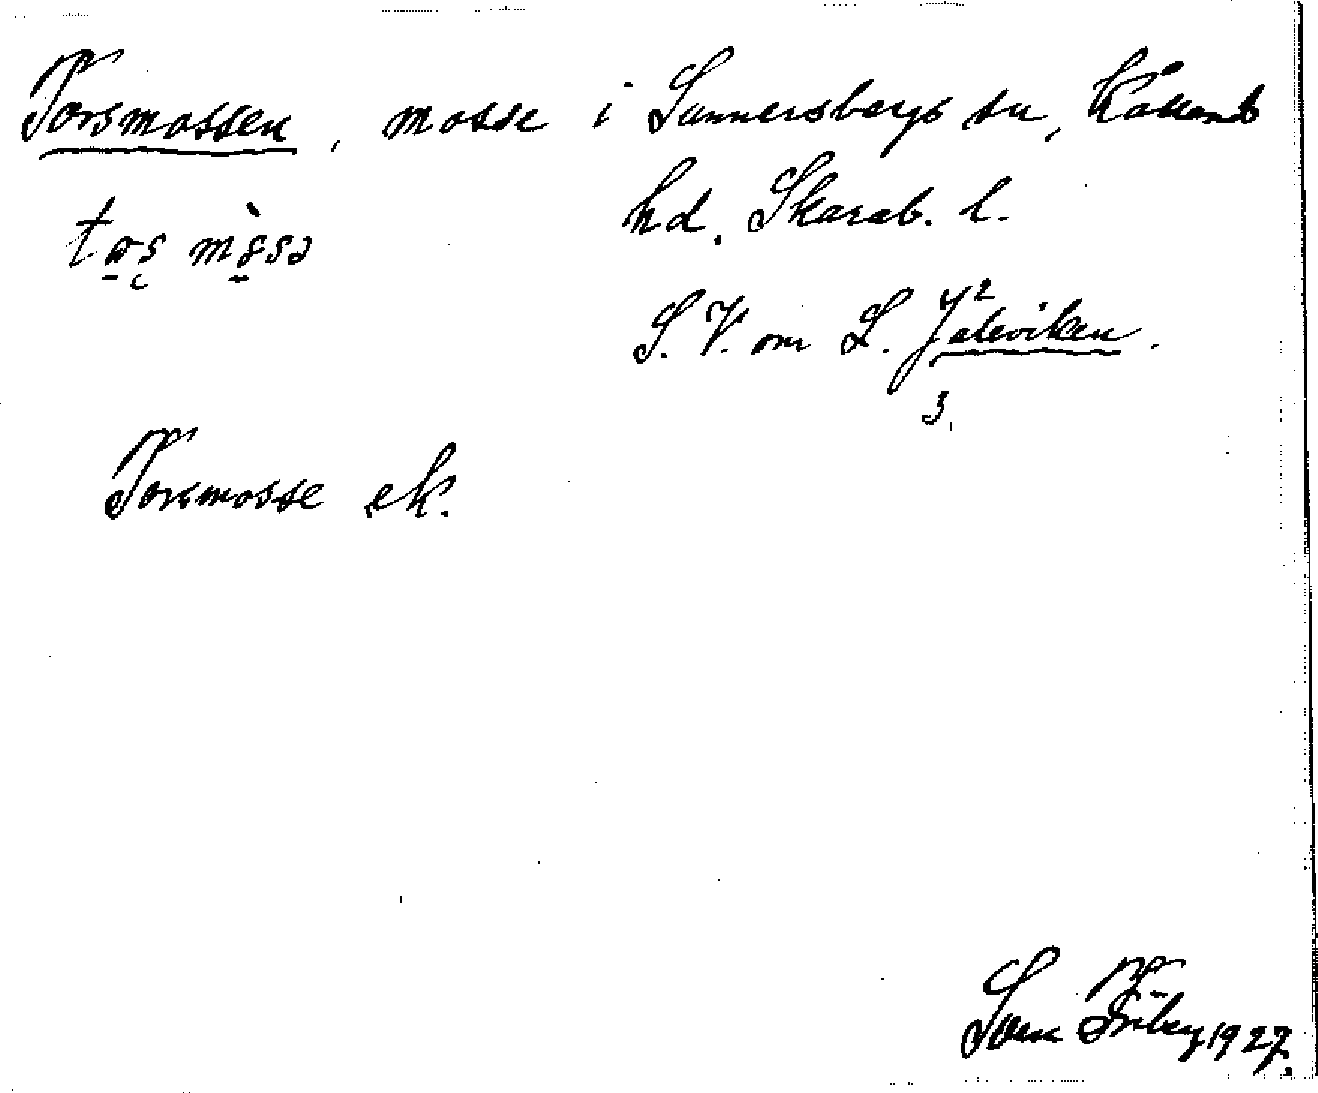 Torsmossen, mosse i Sunnersbergs sn, Kållands
hd. Skarab. l.
tos mösə
S. V. om L. Jaleviken.
2
3
Torsmosse ek.
Sven Friberg 1927.